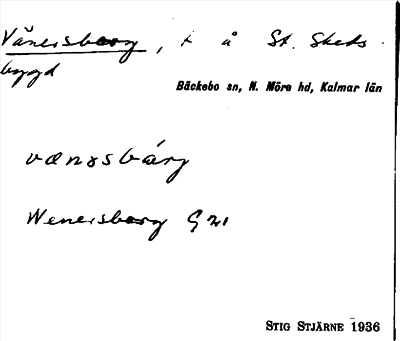 Vänersborg, t å St. Skeds-
bygd
Bäckebo sn, N. Möre hd, Kalmar län
vænəsbárj
Wenersborg G 21
STIG STJÄRNE 1936